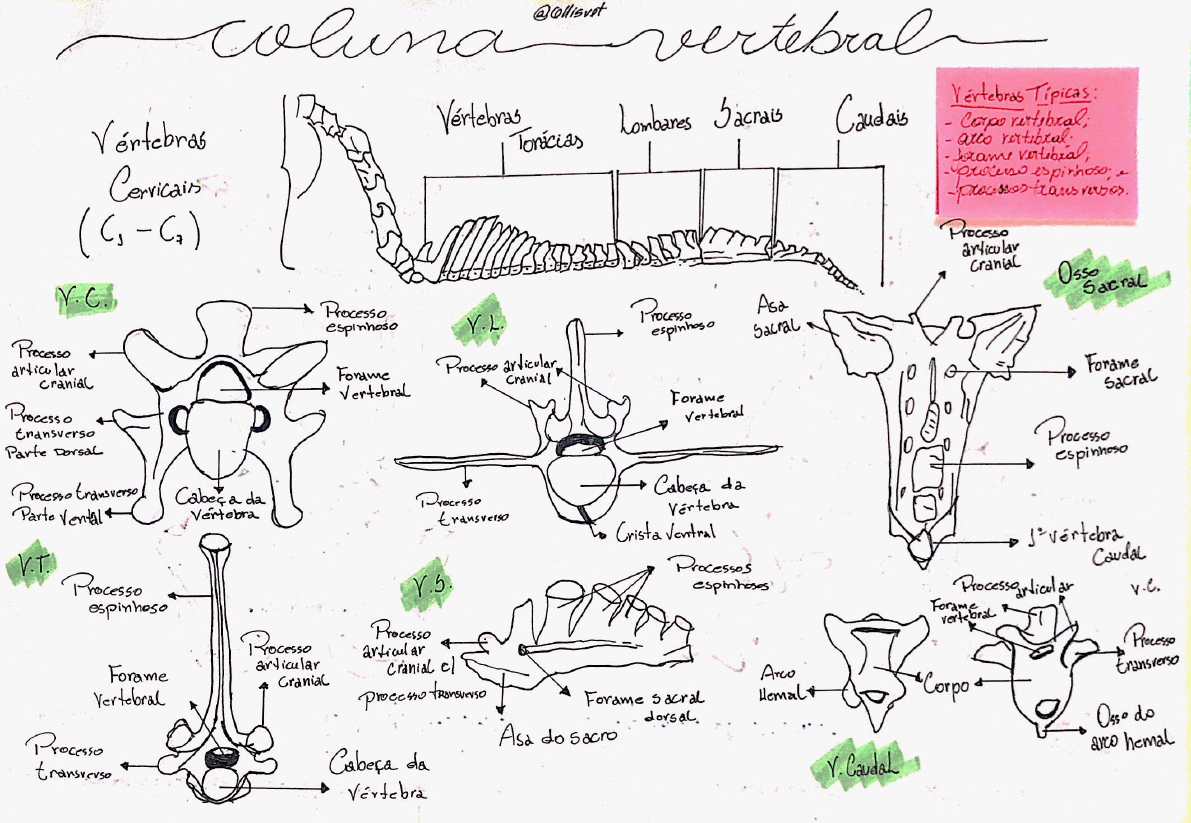 @collisvet
coluna vertebral
Vértebras
Cervicais
(C1 - C7)
Vértebras
Torácias
Lombares
Sacrais
Caudais
Vértebras Típicas:
- Corpo vertebral;
- arco vertebral;
- forame vertebral;
- processo espinhoso; e
- processos transversos.
V.C.
Processo
espinhoso
Processo
articular
cranial
Forame
Vertebral
Processo
transverso
Parte Dorsal
Processo transverso
Parte Vental
Cabeça da
Vértebra
V.L.
Processo
espinhoso
Processo articular
cranial
Forame
vertebral
Processo
transverso
Cabeça da
Vértebra
Crista Ventral
Osso
Sacral
Processo
articular
cranial
Asa
Sacral
Forame
Sacral
Processo
espinhoso
1ª vértebra
Caudal
V.T.
Processo
espinhoso
Processo
articular
Cranial
Forame
Vertebral
Processo
transverso
Cabeça da
Vértebra
V.S.
Processos
espinhoses
Processo
articular
cranial c/
processo transverso
Forame sacral
dorsal
Asa do sacro
V. Caudal
Arco
Hemal
Corpo
V.C.
Processo articular
Forame
vertebral
Processo
transverso
Osso do
arco hemal